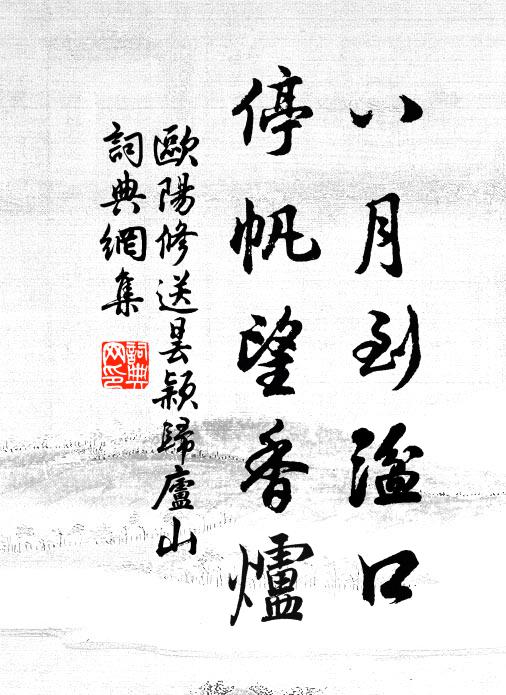 八月到湓口
停帆望香爐
歐陽修送曇穎歸廬山
詞典網集
詞典
網印